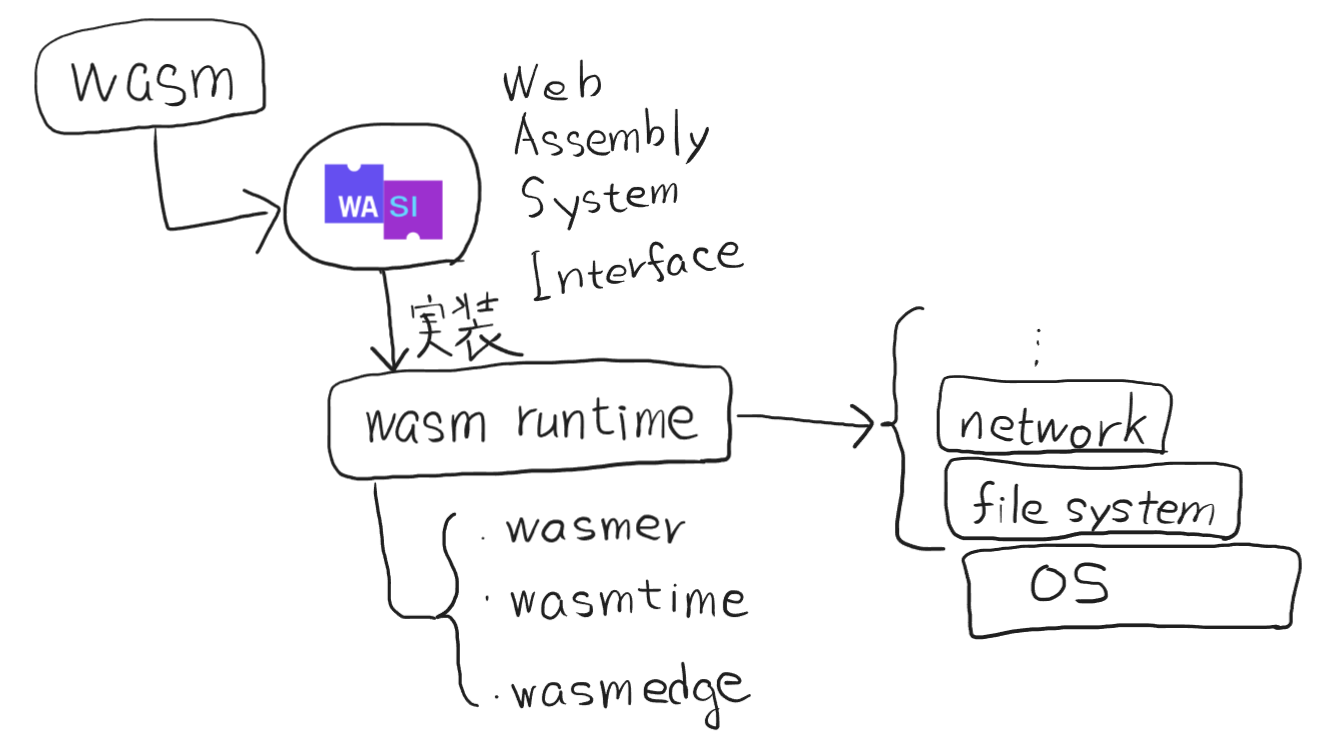 wasm
WASI
Web
Assembly
System
Interface
実装
wasm runtime
・wasmer
・wasmtime
・wasmedge
⋮
network
file system
OS